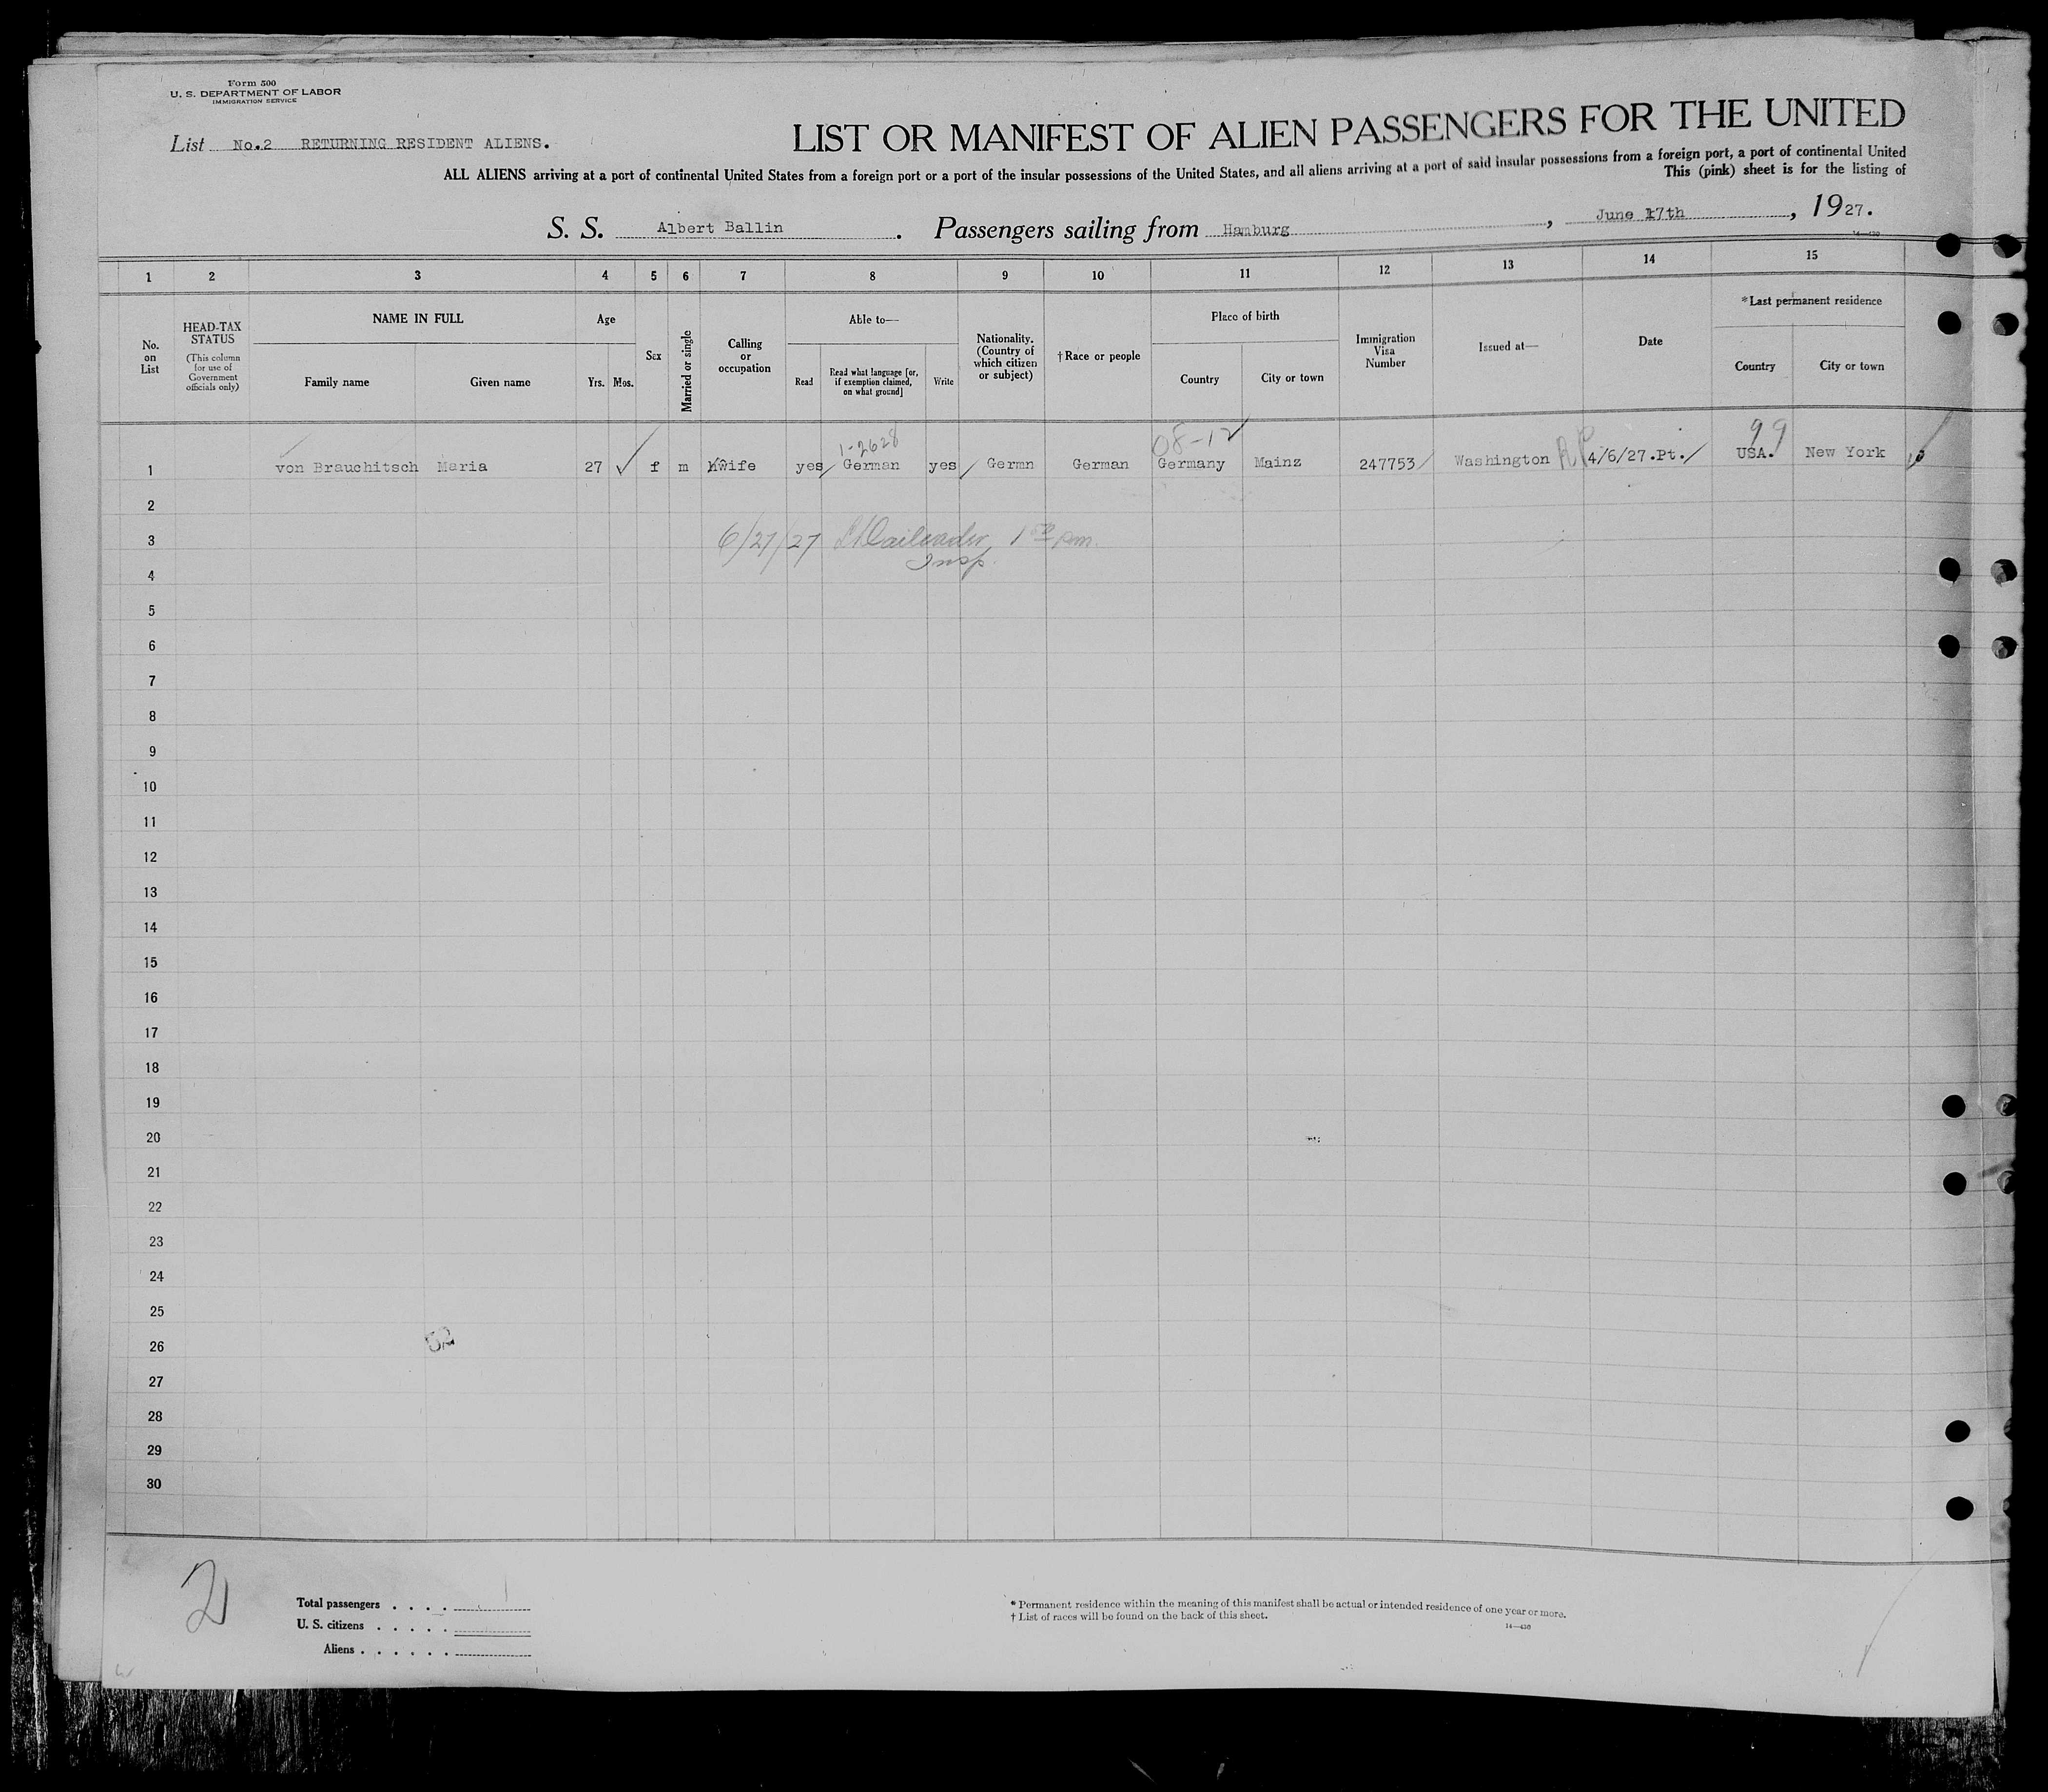 Form 500
U. S. DEPARTMENT OF LABOR
IMMIGRATION SERVICE
List No.2 RETURNING RESIDENT ALIENS.
LIST OR MANIFEST OF ALIEN PASSENGERS FOR THE UNITED
ALL ALIENS arriving at a port of continental United States from a foreign port or a port of the insular possessions of the United States, and all aliens arriving at a port of said insular possessions from a foreign port, a port of continental United
This (pink) sheet is for the listing of
S. S. Albert Ballin. Passengers sailing from Hamburg, June 17th, 1927.
14—430
1 2 3 4 5 6 7 8 9 10 11 12 13 14 15
No. on List
HEAD-TAX STATUS
(This column for use of Government officials only)
NAME IN FULL
Family name Given name
Age
Yrs. Mos.
Sex
Married or single
Calling or occupation
Able to—
Read
Read what language [or, if exemption claimed, on what ground]
Write
Nationality. (Country of which citizen or subject)
† Race or people
Place of birth
Country City or town
Immigration Visa Number
Issued at—
Date
*Last permanent residence
Country City or town
1-2628 08-12 99
1 von Brauchitsch Maria 27 f m wife yes German yes Germn German Germany Mainz 247753 Washington 4/6/27.Pt. USA. New York
2
3 6/27/27 pm.
Insp.
4
5
6
7
8
9
10
11
12
13
14
15
16
17
18
19
20
21
22
23
24
25
26 52
27
28
29
30
2
Total passengers . . . . 1
U. S. citizens . . . . .
Aliens . . . . . .
* Permanent residence within the meaning of this manifest shall be actual or intended residence of one year or more.
† List of races will be found on the back of this sheet.
14—430